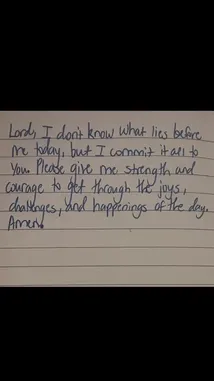 Lord, I don't know what lies before
me today, but I commit it all to
You. Please give me strength and
courage to get through the joys,
challenges, and happenings of the day.
Amen.